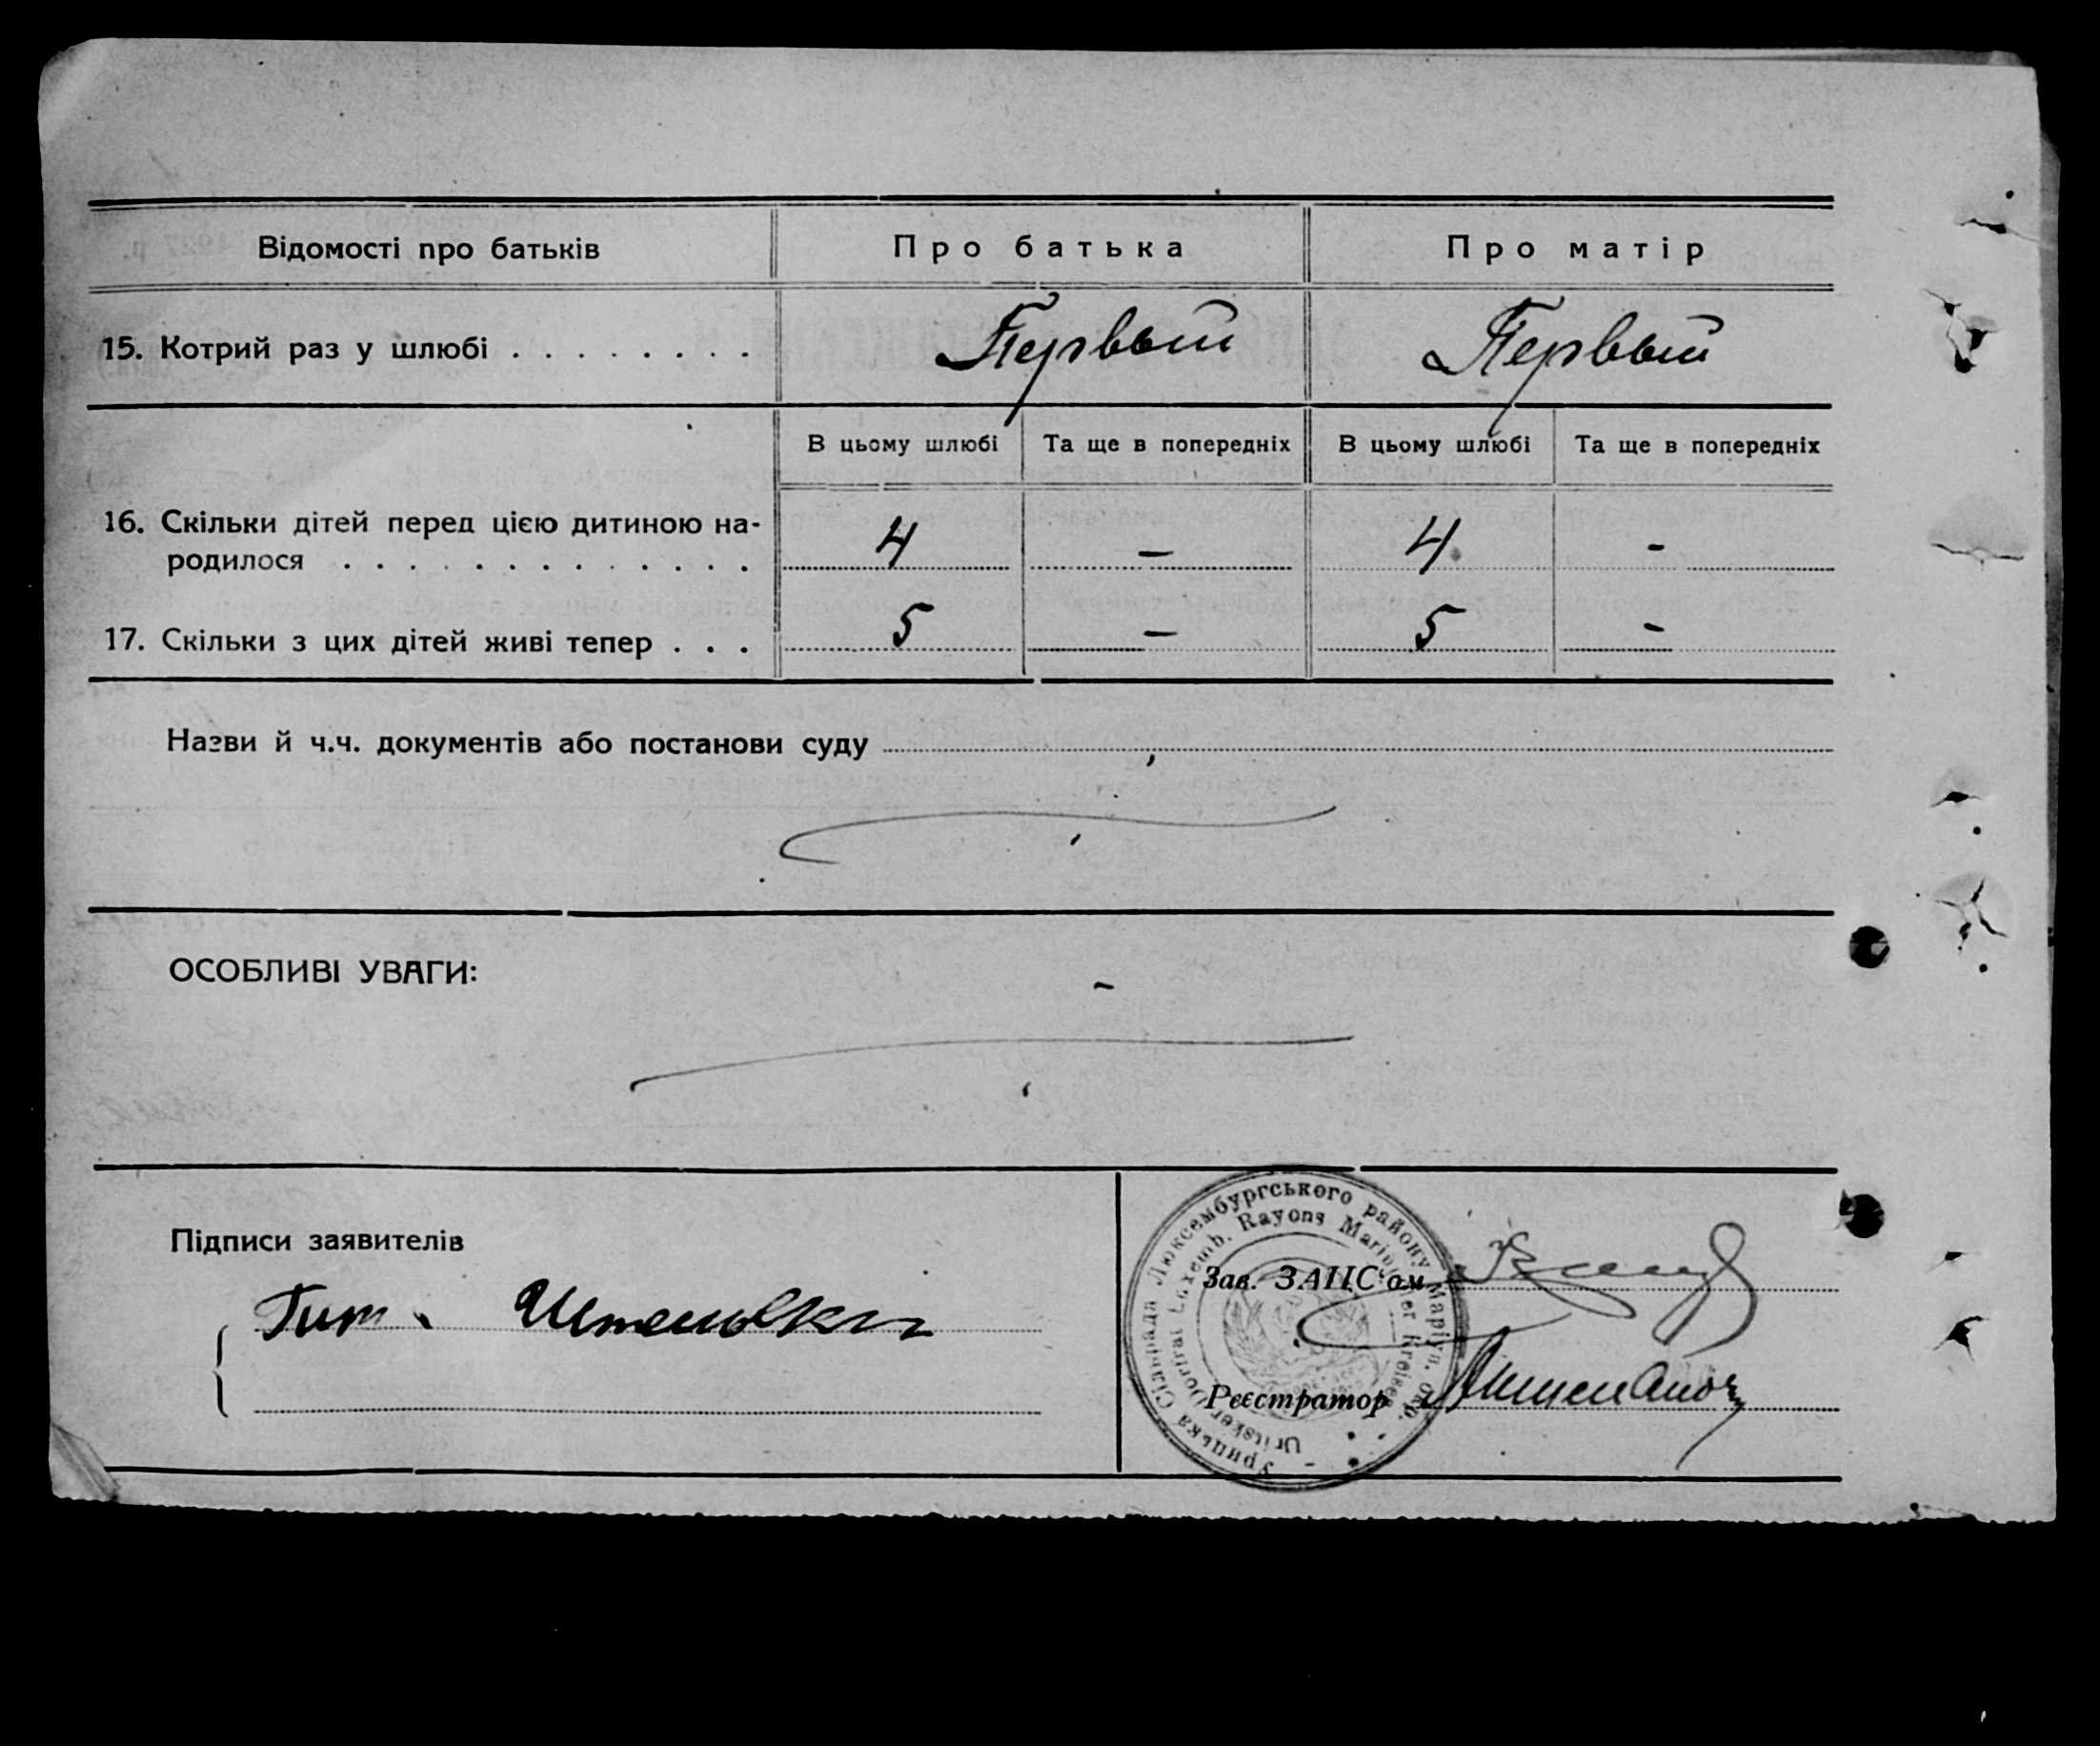 Відомості про батьків
Про батька
Про матір
15. Котрий раз у шлюбі . . . . . . . .
Первый
Первый
В цьому шлюбі
Та ще в попередніх
В цьому шлюбі
Та ще в попередніх
16. Скільки дітей перед цією дитиною на-
родилося . . . . . . . . . . . . .
4
–
4
-
17. Скільки з цих дітей живі тепер . . .
5
–
5
-
Назви й ч.ч. документів або постанови суду
ОСОБЛИВІ УВАГИ:
-
Підписи заявителів
Зав. ЗАГС‘ом
Реєстратор
Урицька Сільрада Люксембургського району Маріуп. окр.
Uritsker Dorfrat Luxemb. Rayons Mariupoler Kreises